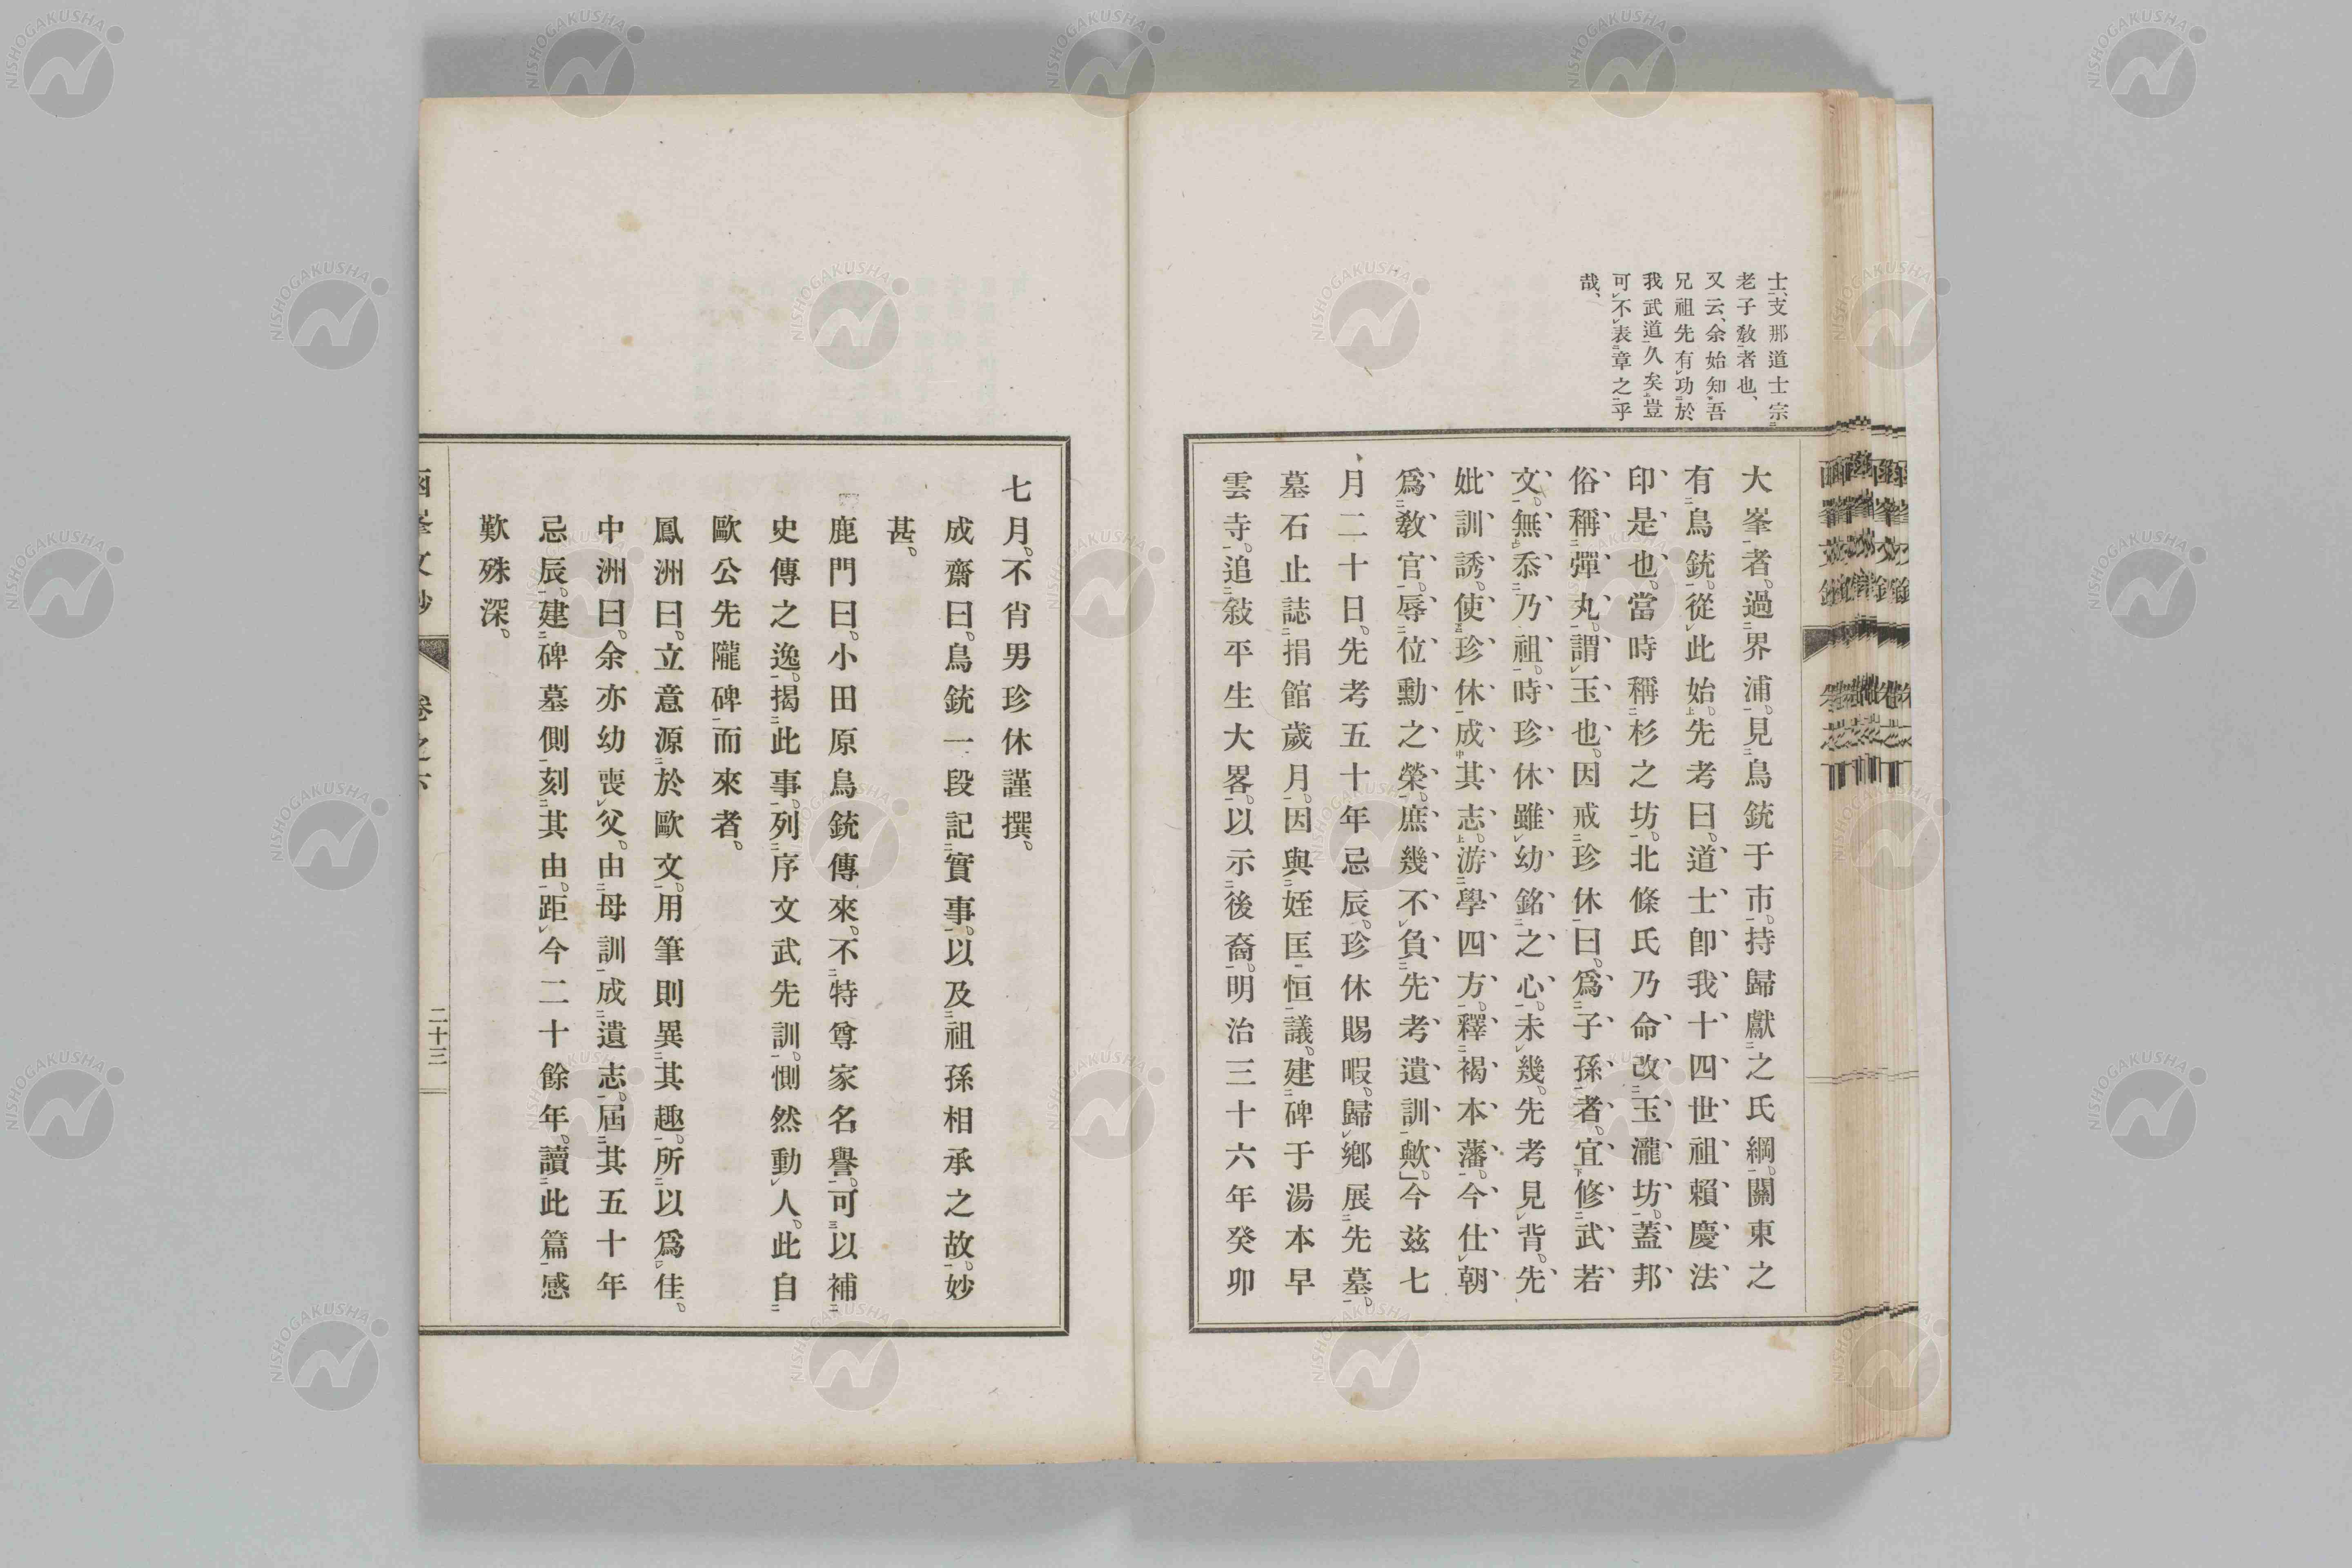 士、支那道士宗
老子敎者也、
又云、余始知吾
兄祖先有功於
我武道久矣豈
可不表章之乎
哉、
大峯者。過界浦。見鳥銃于市。持歸獻之氏綱。關東之
有鳥銃。從此始。先考曰。道士卽我十四世祖賴慶法
印是也。當時稱杉之坊。北條氏乃命改玉瀧坊。蓋邦
俗稱彈丸。謂玉也。因戒珍休曰。爲子孫者。宜修武若
文。無忝乃祖。時珍休雖幼銘之心。未幾。先考見背。先
妣訓誘。使珍休成其志。游學四方。釋褐本藩。今仕朝
爲敎官。辱位勳之榮。庶幾不負先考遺訓歟。」今玆七
月二十日。先考五十年忌辰。珍休賜暇。歸鄉展先墓。
墓石止誌捐館歲月。因與姪匡恒議。建碑于湯本早
雲寺。追敍平生大畧。以示後裔。明治三十六年癸卯
七月。不肖男珍休謹撰。
成齋曰。鳥銃一段記實事。以及祖孫相承之故。妙
甚。
鹿門曰。小田原鳥銃傳來。不特尊家名譽。可以補
史傳之逸。揭此事。列序文武先訓。惻然動人。此自
歐公先隴碑而來者。
鳳洲曰。立意源於歐文。用筆則異其趣。所以爲佳。
中洲曰。余亦幼喪父。由母訓成遺志。屆其五十年
忌辰。建碑墓側。刻其由。距今二十餘年。讀此篇感
歎殊深。
函峯文鈔
卷之六
二十三
NISHOGAKUSHA